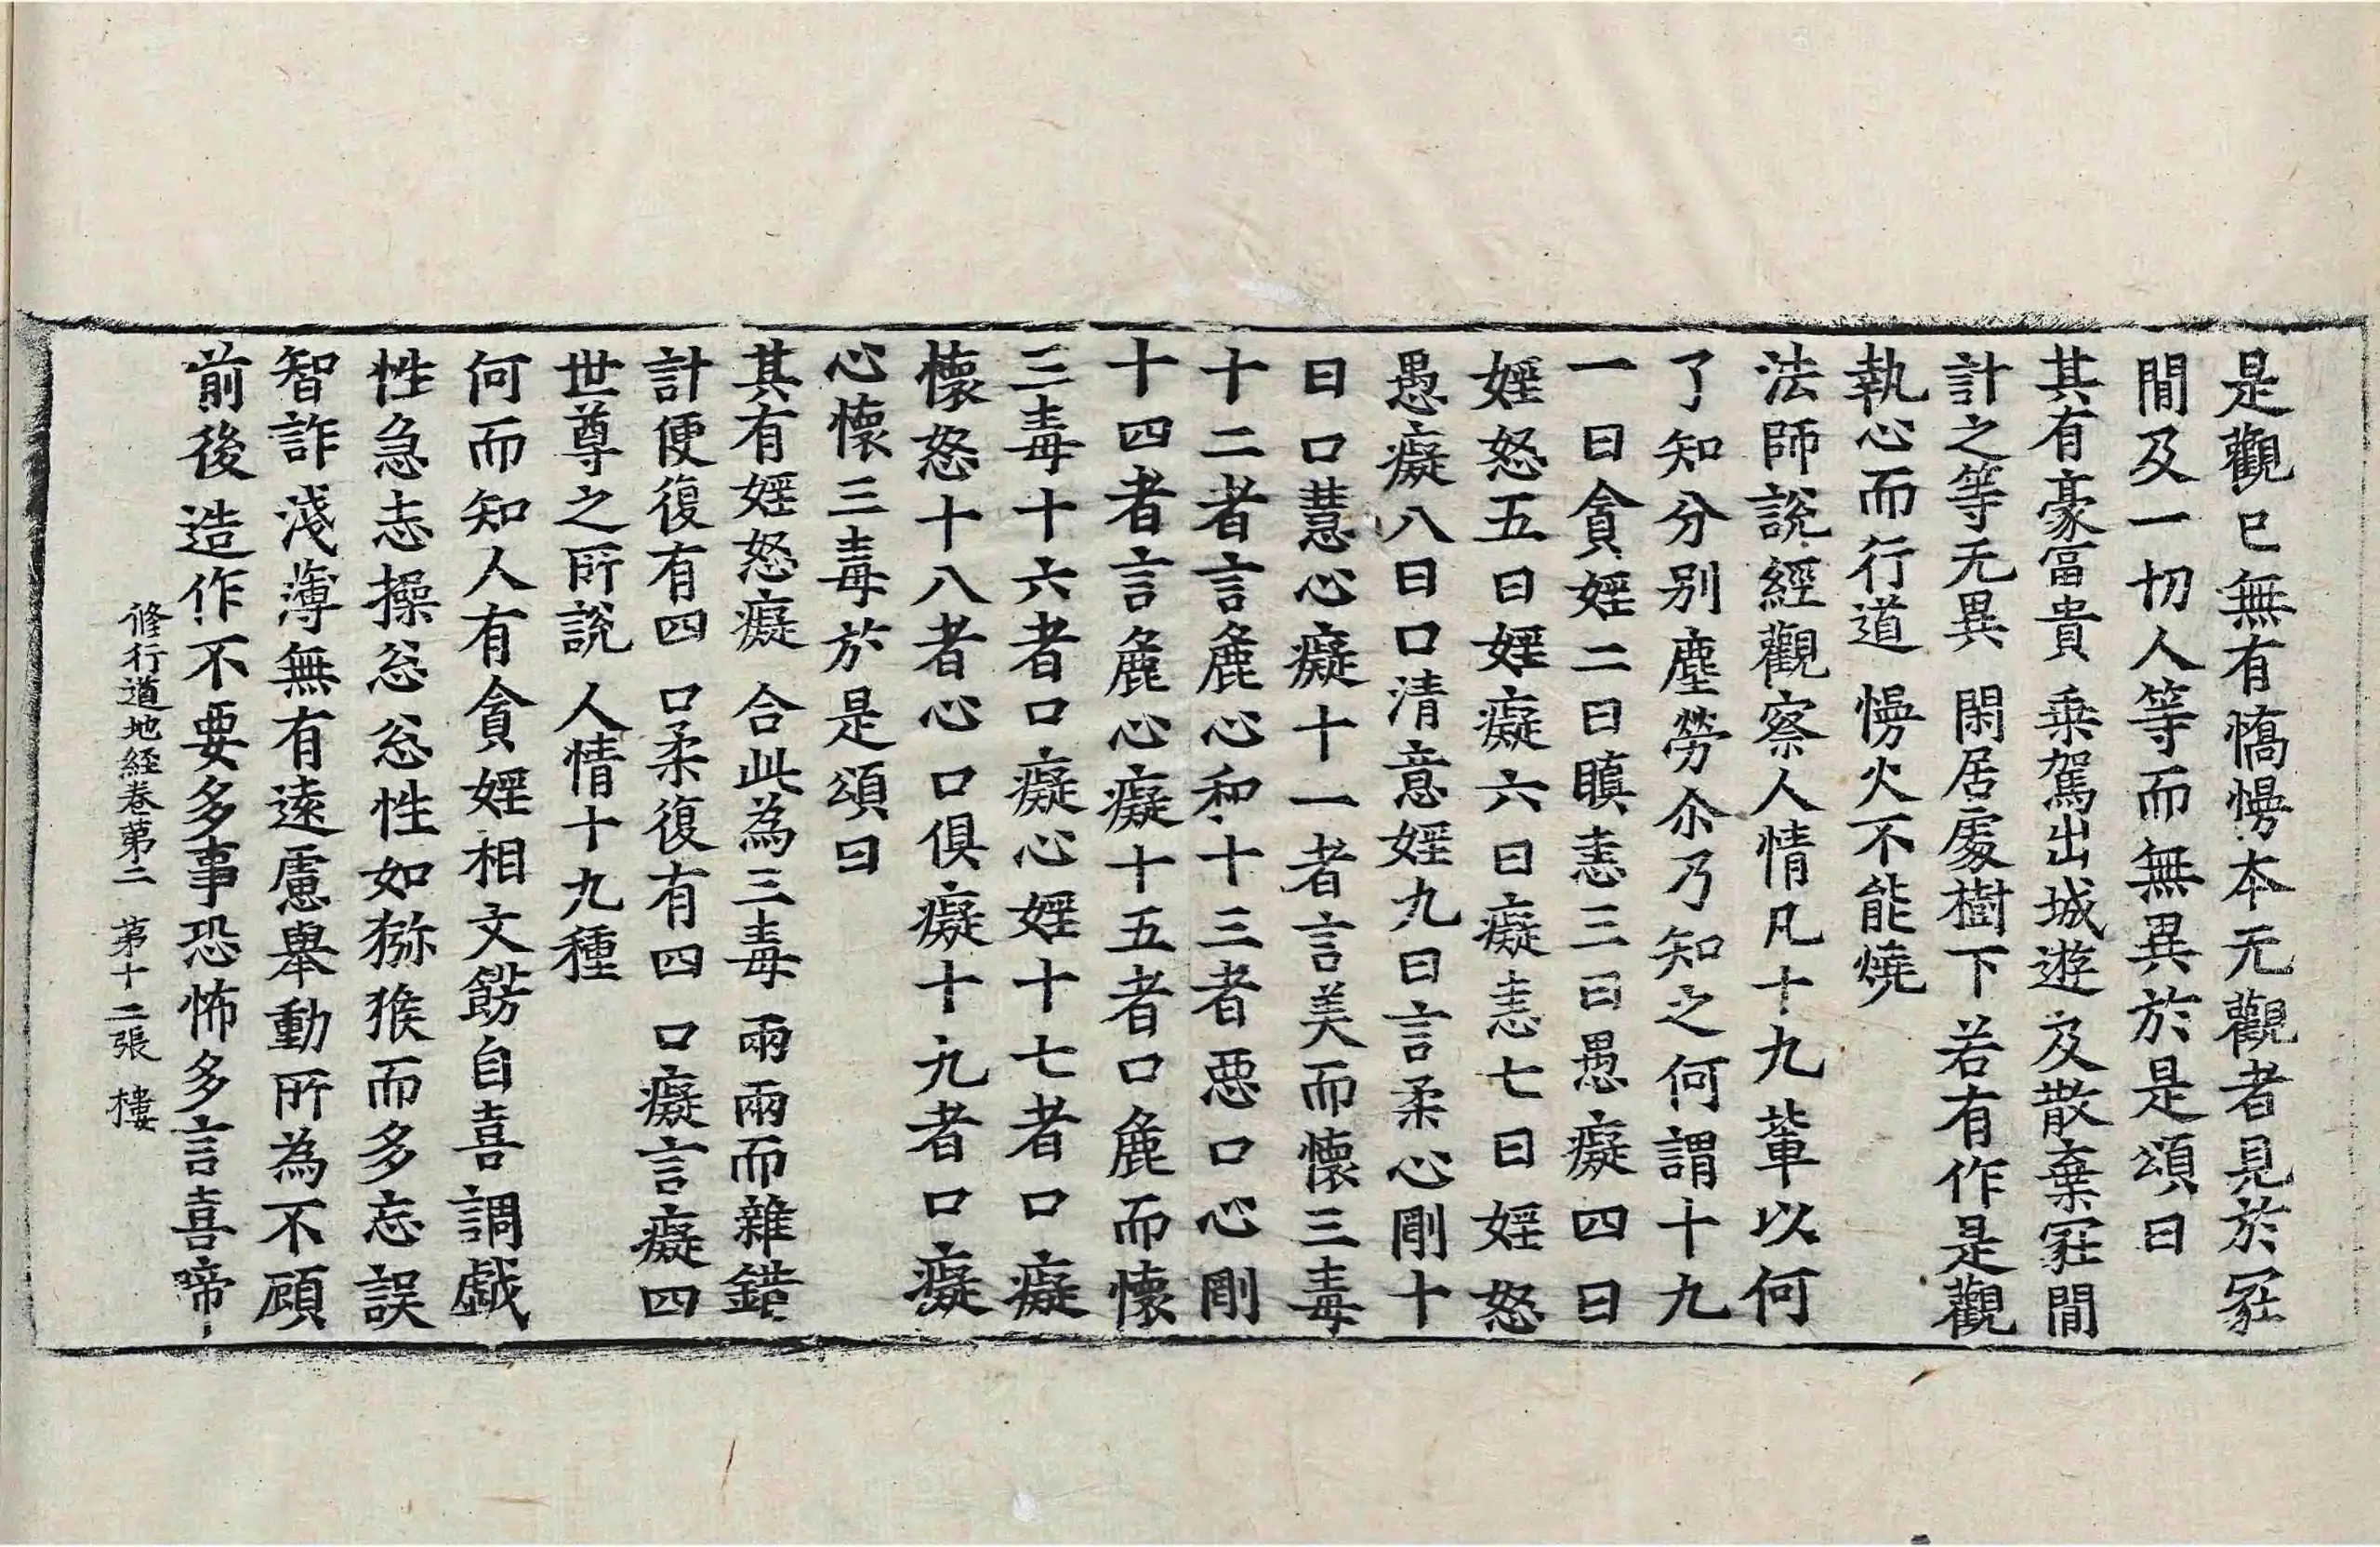 是觀已無有憍慢本无觀者見於冢
間及一切人等而無異於是頌曰
其有豪富貴 乗駕出城遊 及散棄冢間
計之等无異 閑居處樹下 若有作是觀
執心而行道 慢火不能燒
法師說經觀察人情凡十九軰以何
了知分別塵勞尒乃知之何謂十九
一曰貪婬二曰瞋恚三曰愚癡四曰
婬怒五曰婬癡六曰癡恚七曰婬怒
愚癡八曰口清意婬九曰言柔心剛十
曰口慧心癡十一者言美而懷三毒
十二者言麁心和十三者惡口心剛
十四者言麁心癡十五者口麁而懷
三毒十六者口癡心婬十七者口癡
懷怒十八者心口俱癡十九者口癡
心懷三毒於是頌曰
其有婬怒癡 合此為三毒 兩兩而雜錯
計便復有四 口柔復有四 口癡言癡四
世尊之所說 人情十九種
何而知人有貪婬相文餝自喜調戯
性急志操忩忩性如猕猴而多忘誤
智詐淺薄無有遠慮舉動所為不顧
前後造作不要多事恐怖多言喜啼
修行道地経卷第二 第十二張 樓